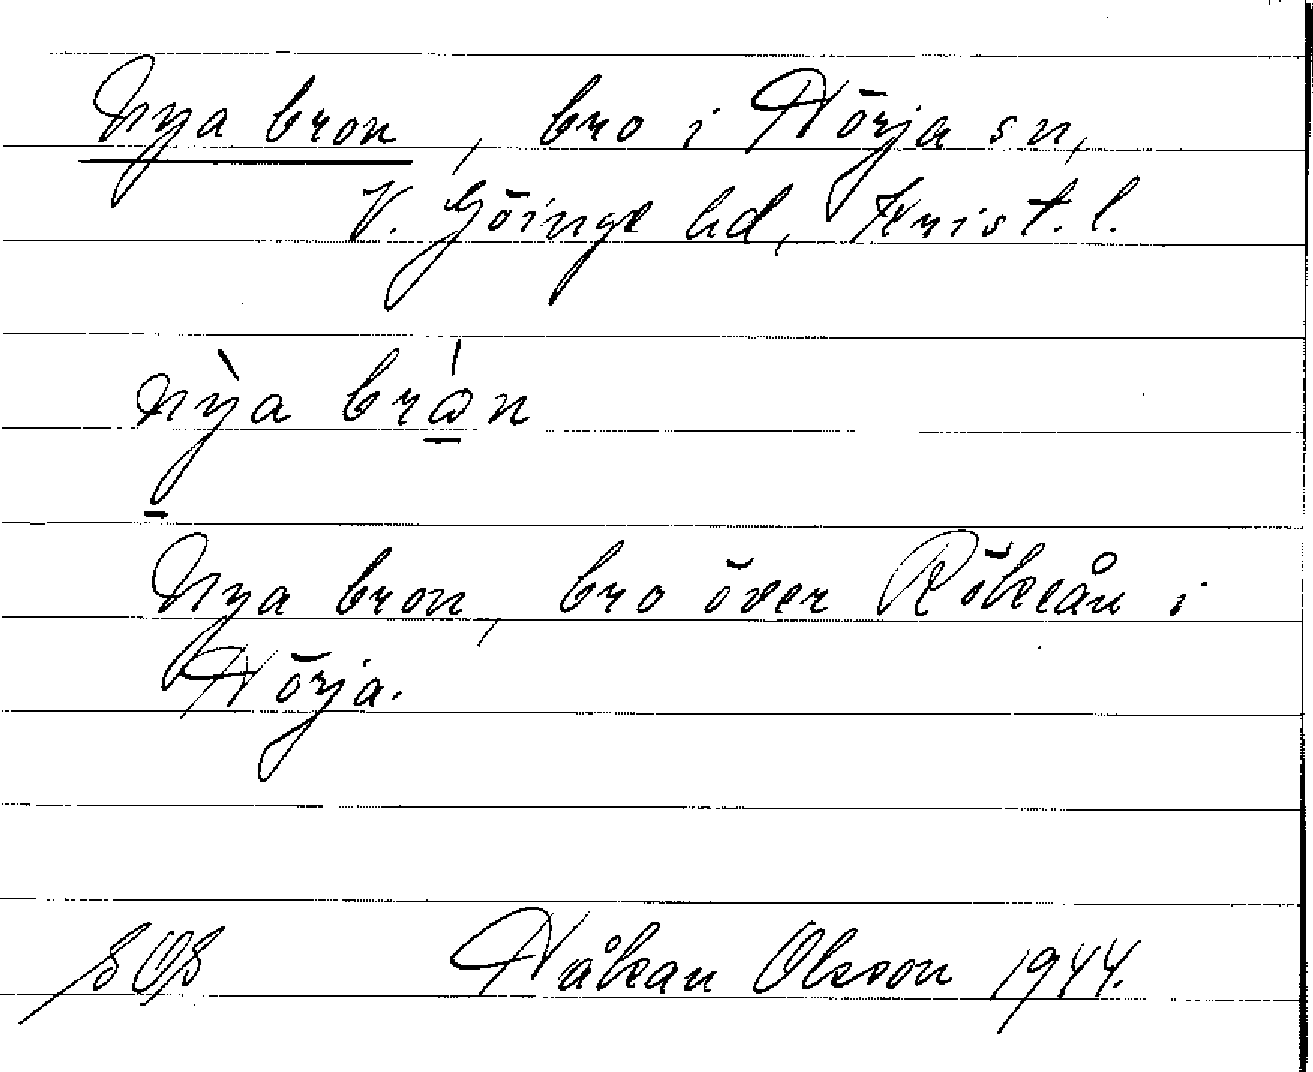 Nya bron, bro i Hörja sn,
V. Göinge hd, Krist. l.
nỳa brǻn
Nya bron, bro över Rökeån i
Hörja.
SOS Håkan Olsson 1944.